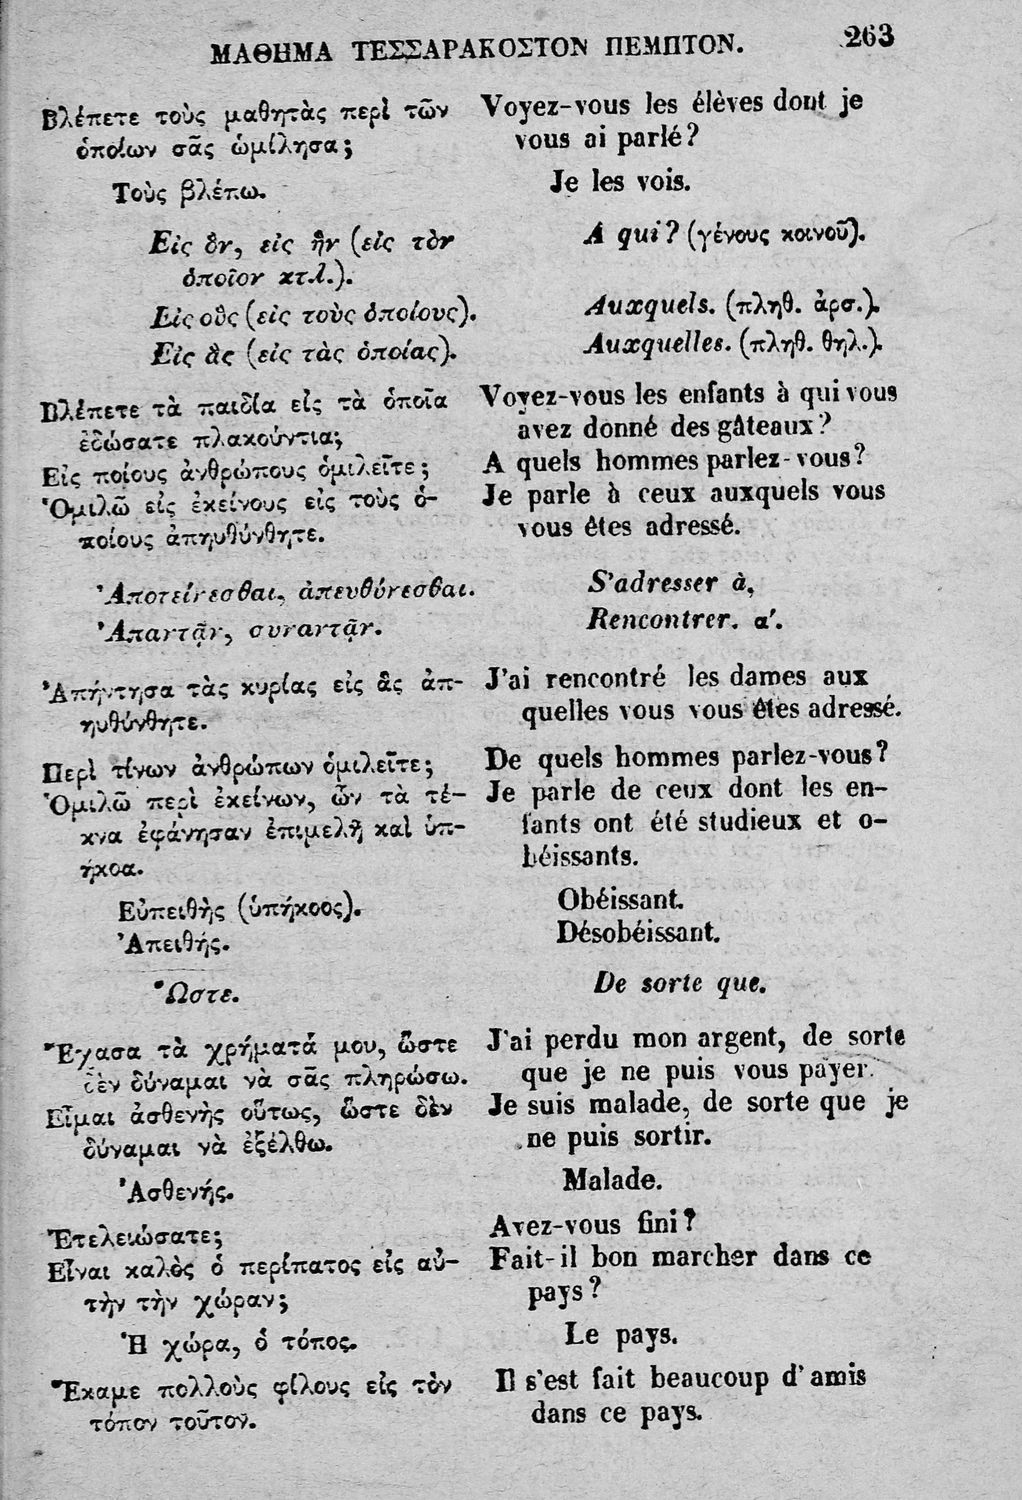 ΜΑΘΗΜΑ ΤΕΣΣΑΡΑΚΟΣΤΟΝ ΠΕΜΠΤΟΝ.
263
Βλέπετε τοὺς μαθητὰς περὶ τῶν
ὁποίων σᾶς ὡμίλησα;
Τοὺς βλέπω.
Εἰς ὃν, εἰς ἣν (εἰς τὸν
ὁποῖον κτ.λ.).
Εἰς οὓς (εἰς τοὺς ὁποίους).
Εἰς ἃς (εἰς τὰς ὁποίας).
Βλέπετε τὰ παιδία εἰς τὰ ὁποῖα
ἐδώσατε πλακούντια;
Εἰς ποίους ἀνθρώπους ὁμιλεῖτε;
Ὁμιλῶ εἰς ἐκείνους εἰς τοὺς ὁ-
ποίους ἀπηυθύνθητε.
Ἀποτείνεσθαι, ἀπευθύνεσθαι.
Ἀπαντᾷν, συναντᾷν.
Ἀπήντησα τὰς κυρίας εἰς ἃς ἀπ-
ηυθύνθητε.
Περὶ τίνων ἀνθρώπων ὁμιλεῖτε;
Ὁμιλῶ περὶ ἐκείνων, ὧν τὰ τέ-
κνα ἐφάνησαν ἐπιμελῆ καὶ ὑπ-
ήκοα.
Εὐπειθὴς (ὑπήκοος).
Ἀπειθής.
Ὥστε.
Ἔχασα τὰ χρήματά μου, ὥστε
δὲν δύναμαι νὰ σᾶς πληρώσω.
Εἶμαι ἀσθενὴς οὕτως, ὥστε δὲν
δύναμαι νὰ ἐξέλθω.
Ἀσθενής.
Ἐτελειώσατε;
Εἶναι καλὸς ὁ περίπατος εἰς αὐ-
τὴν τὴν χώραν;
Ἡ χώρα, ὁ τόπος.
Ἔκαμε πολλοὺς φίλους εἰς τὸν
τόπον τοῦτον.
Voyez-vous les élèves dont je
vous ai parlé?
Je les vois.
A qui? (γένους κοινοῦ).
Auxquels. (πληθ. ἀρσ.).
Auxquelles. (πληθ. θηλ.).
Voyez-vous les enfants à qui vous
avez donné des gâteaux?
A quels hommes parlez-vous?
Je parle à ceux auxquels vous
vous êtes adressé.
S'adresser à,
Rencontrer. α'.
J'ai rencontré les dames aux
quelles vous vous êtes adressé.
De quels hommes parlez-vous?
Je parle de ceux dont les en-
fants ont été studieux et o-
béissants.
Obéissant.
Désobéissant.
De sorte que.
J'ai perdu mon argent, de sorte
que je ne puis vous payer.
Je suis malade, de sorte que je
ne puis sortir.
Malade.
Avez-vous fini?
Fait-il bon marcher dans ce
pays?
Le pays.
Il s'est fait beaucoup d'amis
dans ce pays.